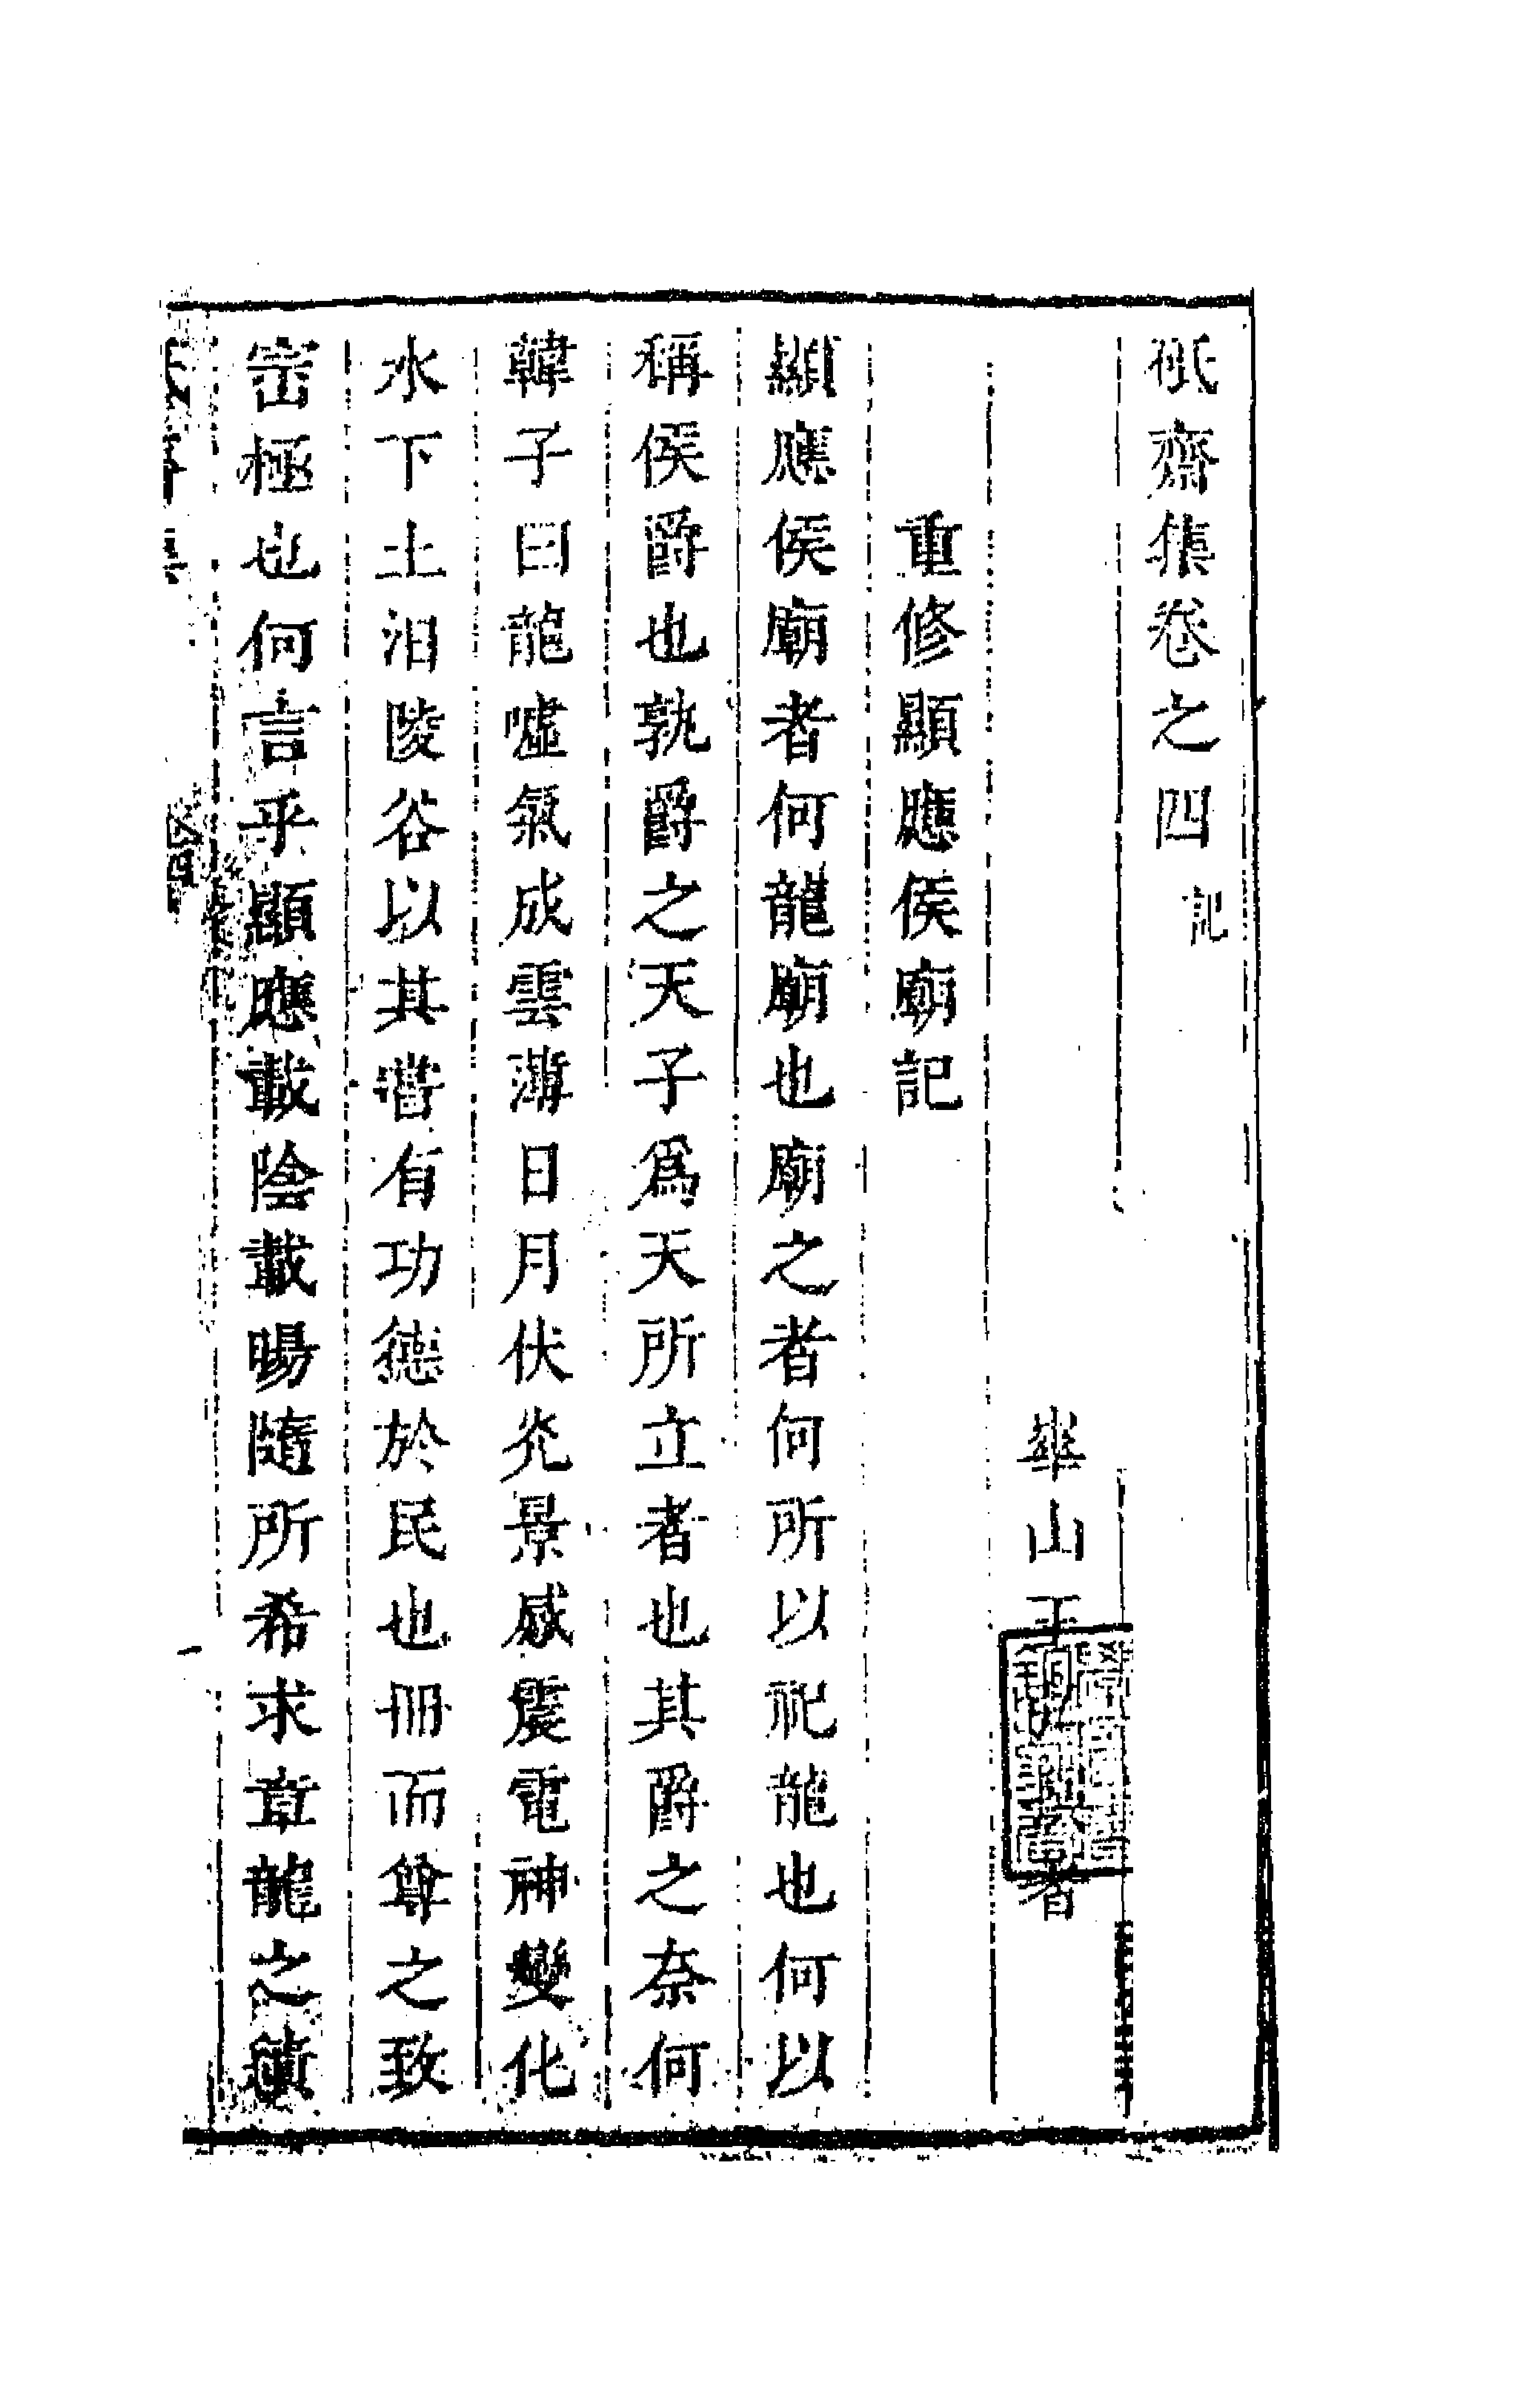 砥齋集卷之四 記
華山王 著
重修顯應侯廟記
顯應侯廟者何龍廟也廟之者何所以祀龍也何以
稱侯爵也孰爵之天子爲天所立者也其爵之奈何
韓子曰龍噓氣成雲薄日月伏光景感震電神變化
水下土汨陵谷以其嘗有功德於民也冊而尊之致
崇極也何言乎顯應載陰載暘隨所希求章龍之績